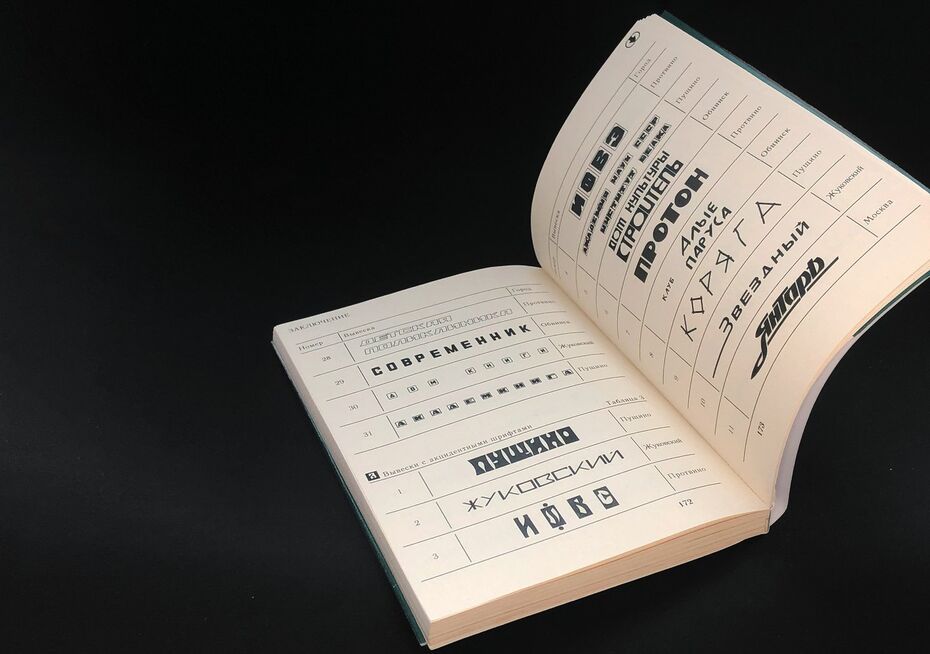 ЗАКЛЮЧЕНИЕ
Номер Вывеска Город
28 ДЕТСКАЯ ПОЛИКЛИНИКА Протвино
29 СОВРЕМЕННИК Обнинск
30 ДОМ КНИГИ Жуковский
31 АКАДЕМКНИГА Пущино
Таблица 3
Я Вывески с акцидентными шрифтами
1 ПУЩИНО Пущино
2 ЖУКОВСКИЙ Жуковский
3 ИФВЭ Протвино
172
Вывеска Город
4 ИФВЭ Протвино
5 АКАДЕМИЯ НАУК СССР Пущино
ИНСТИТУТ БЕЛКА
6 ДОМ КУЛЬТУРЫ Обнинск
СТРОИТЕЛЬ
7 ПРОТОН Протвино
КЛУБ АЛЫЕ Обнинск
ПАРУСА
9 КОРЯГА Пущино
10 ЗВЕЗДНЫЙ Жуковский
11 ЯНТАРЬ Москва
173